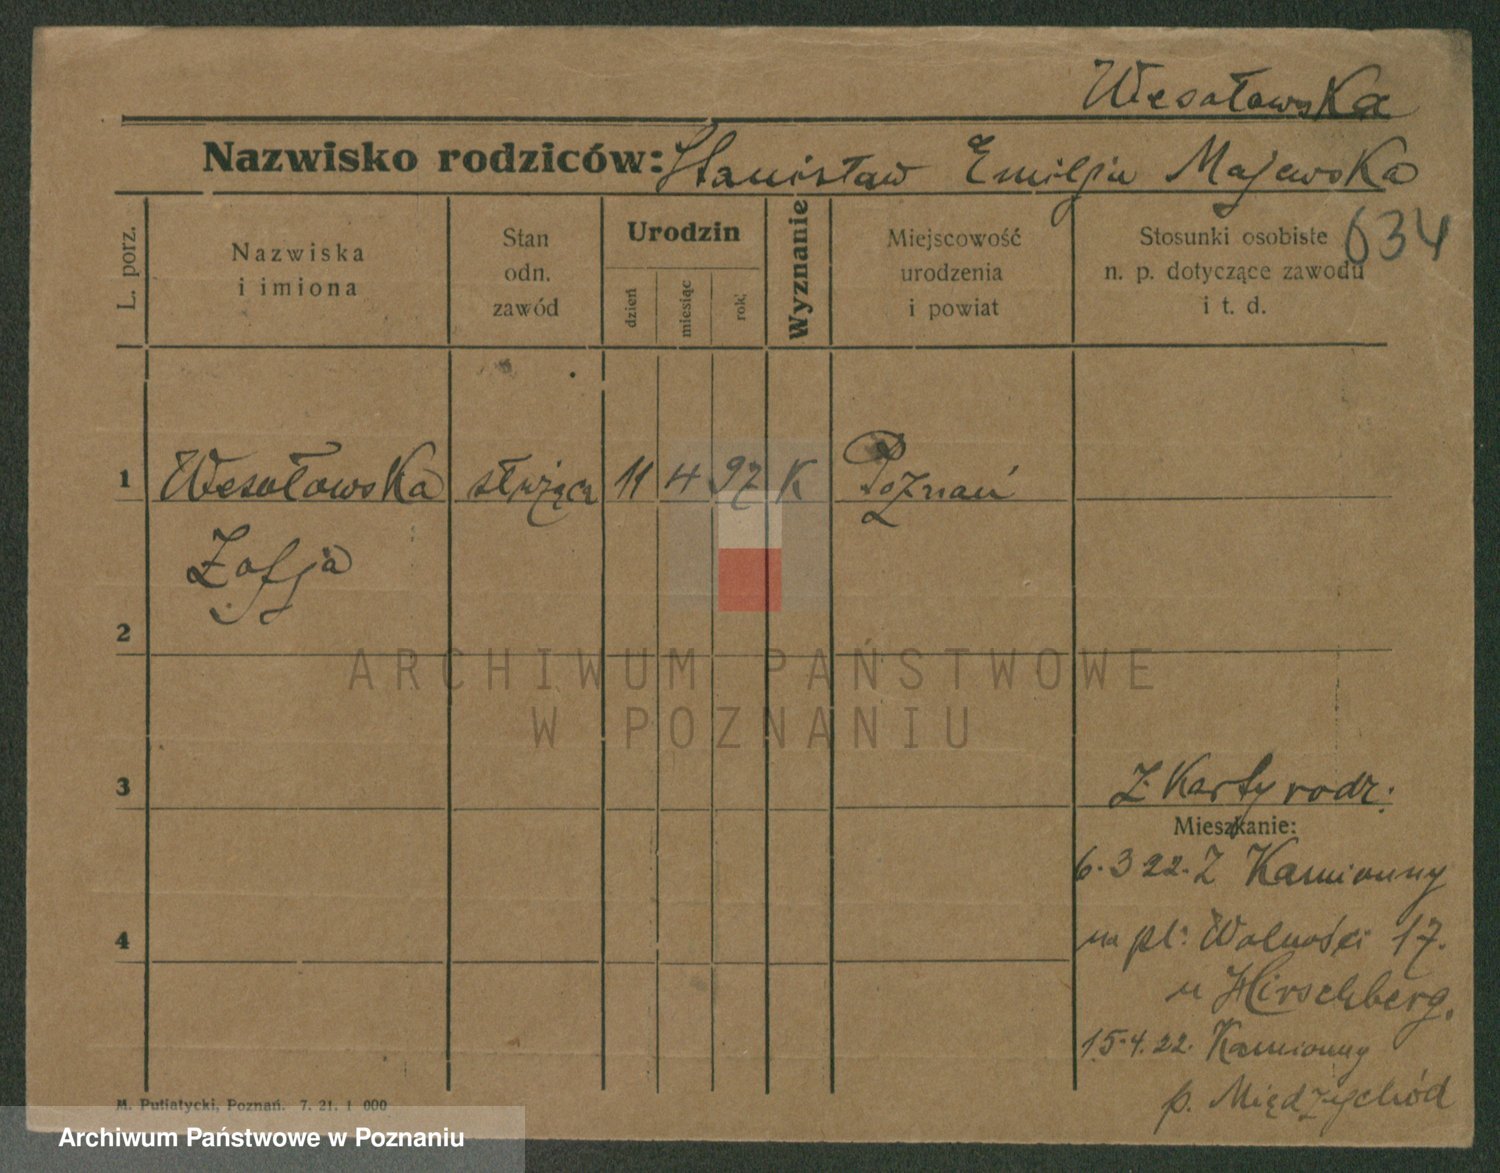 Wesołowska
Nazwisko rodziców: Stanisław Emilja Majewska
634
L. porz.
Nazwiska
i imiona
Stan
odn.
zawód
Urodzin
dzień
miesiąc
rok.
Wyznanie
Miejscowość
urodzenia
i powiat
Stosunki osobiste
n. p. dotyczące zawodu
i t. d.
1 Wesołowska służąca 11 4 97 K Poznań
Zofja
2
ARCHIWUM PAŃSTWOWE
W POZNANIU
3
Z Karty rodz.
Mieszkanie:
6.3 22. Z Kamionny
4
na pl. Wolności 17.
u Hirschberg.
15.4.22. Kamionny
p. Międzychód
M. Putiatycki, Poznań. 7. 21. 1 000
Archiwum Państwowe w Poznaniu